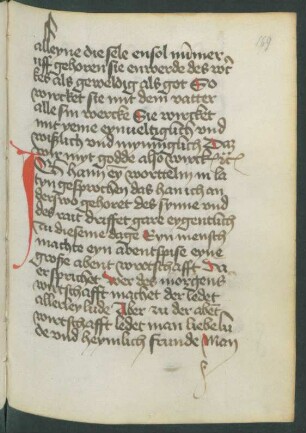 189
alleyne die sele ensol nummer
uff gehoren sie enwerde des wer
kes als geweldig als got So
wircket sie mit dem vatter
alle sin wercke Sie wircket
mit yeme eynueltiglich und
wißlich und mynniglich Daz
wir myt godde also wircken
Ich han ey wortteln in la
tyn gesprochen das han ich an
derswo gehoret des synne und
des rait dreffet gare eygentlich
zu dieseme dage Eyn mensch
machte eyn abentspise eyne
große abent wirtschafft Da
er sprichet Wer des morgens
wirtschafft machet der ledet
allerley lude Aber zu der abet
wirtschafft ledet man liebe lu
de und heymlich frunde Man